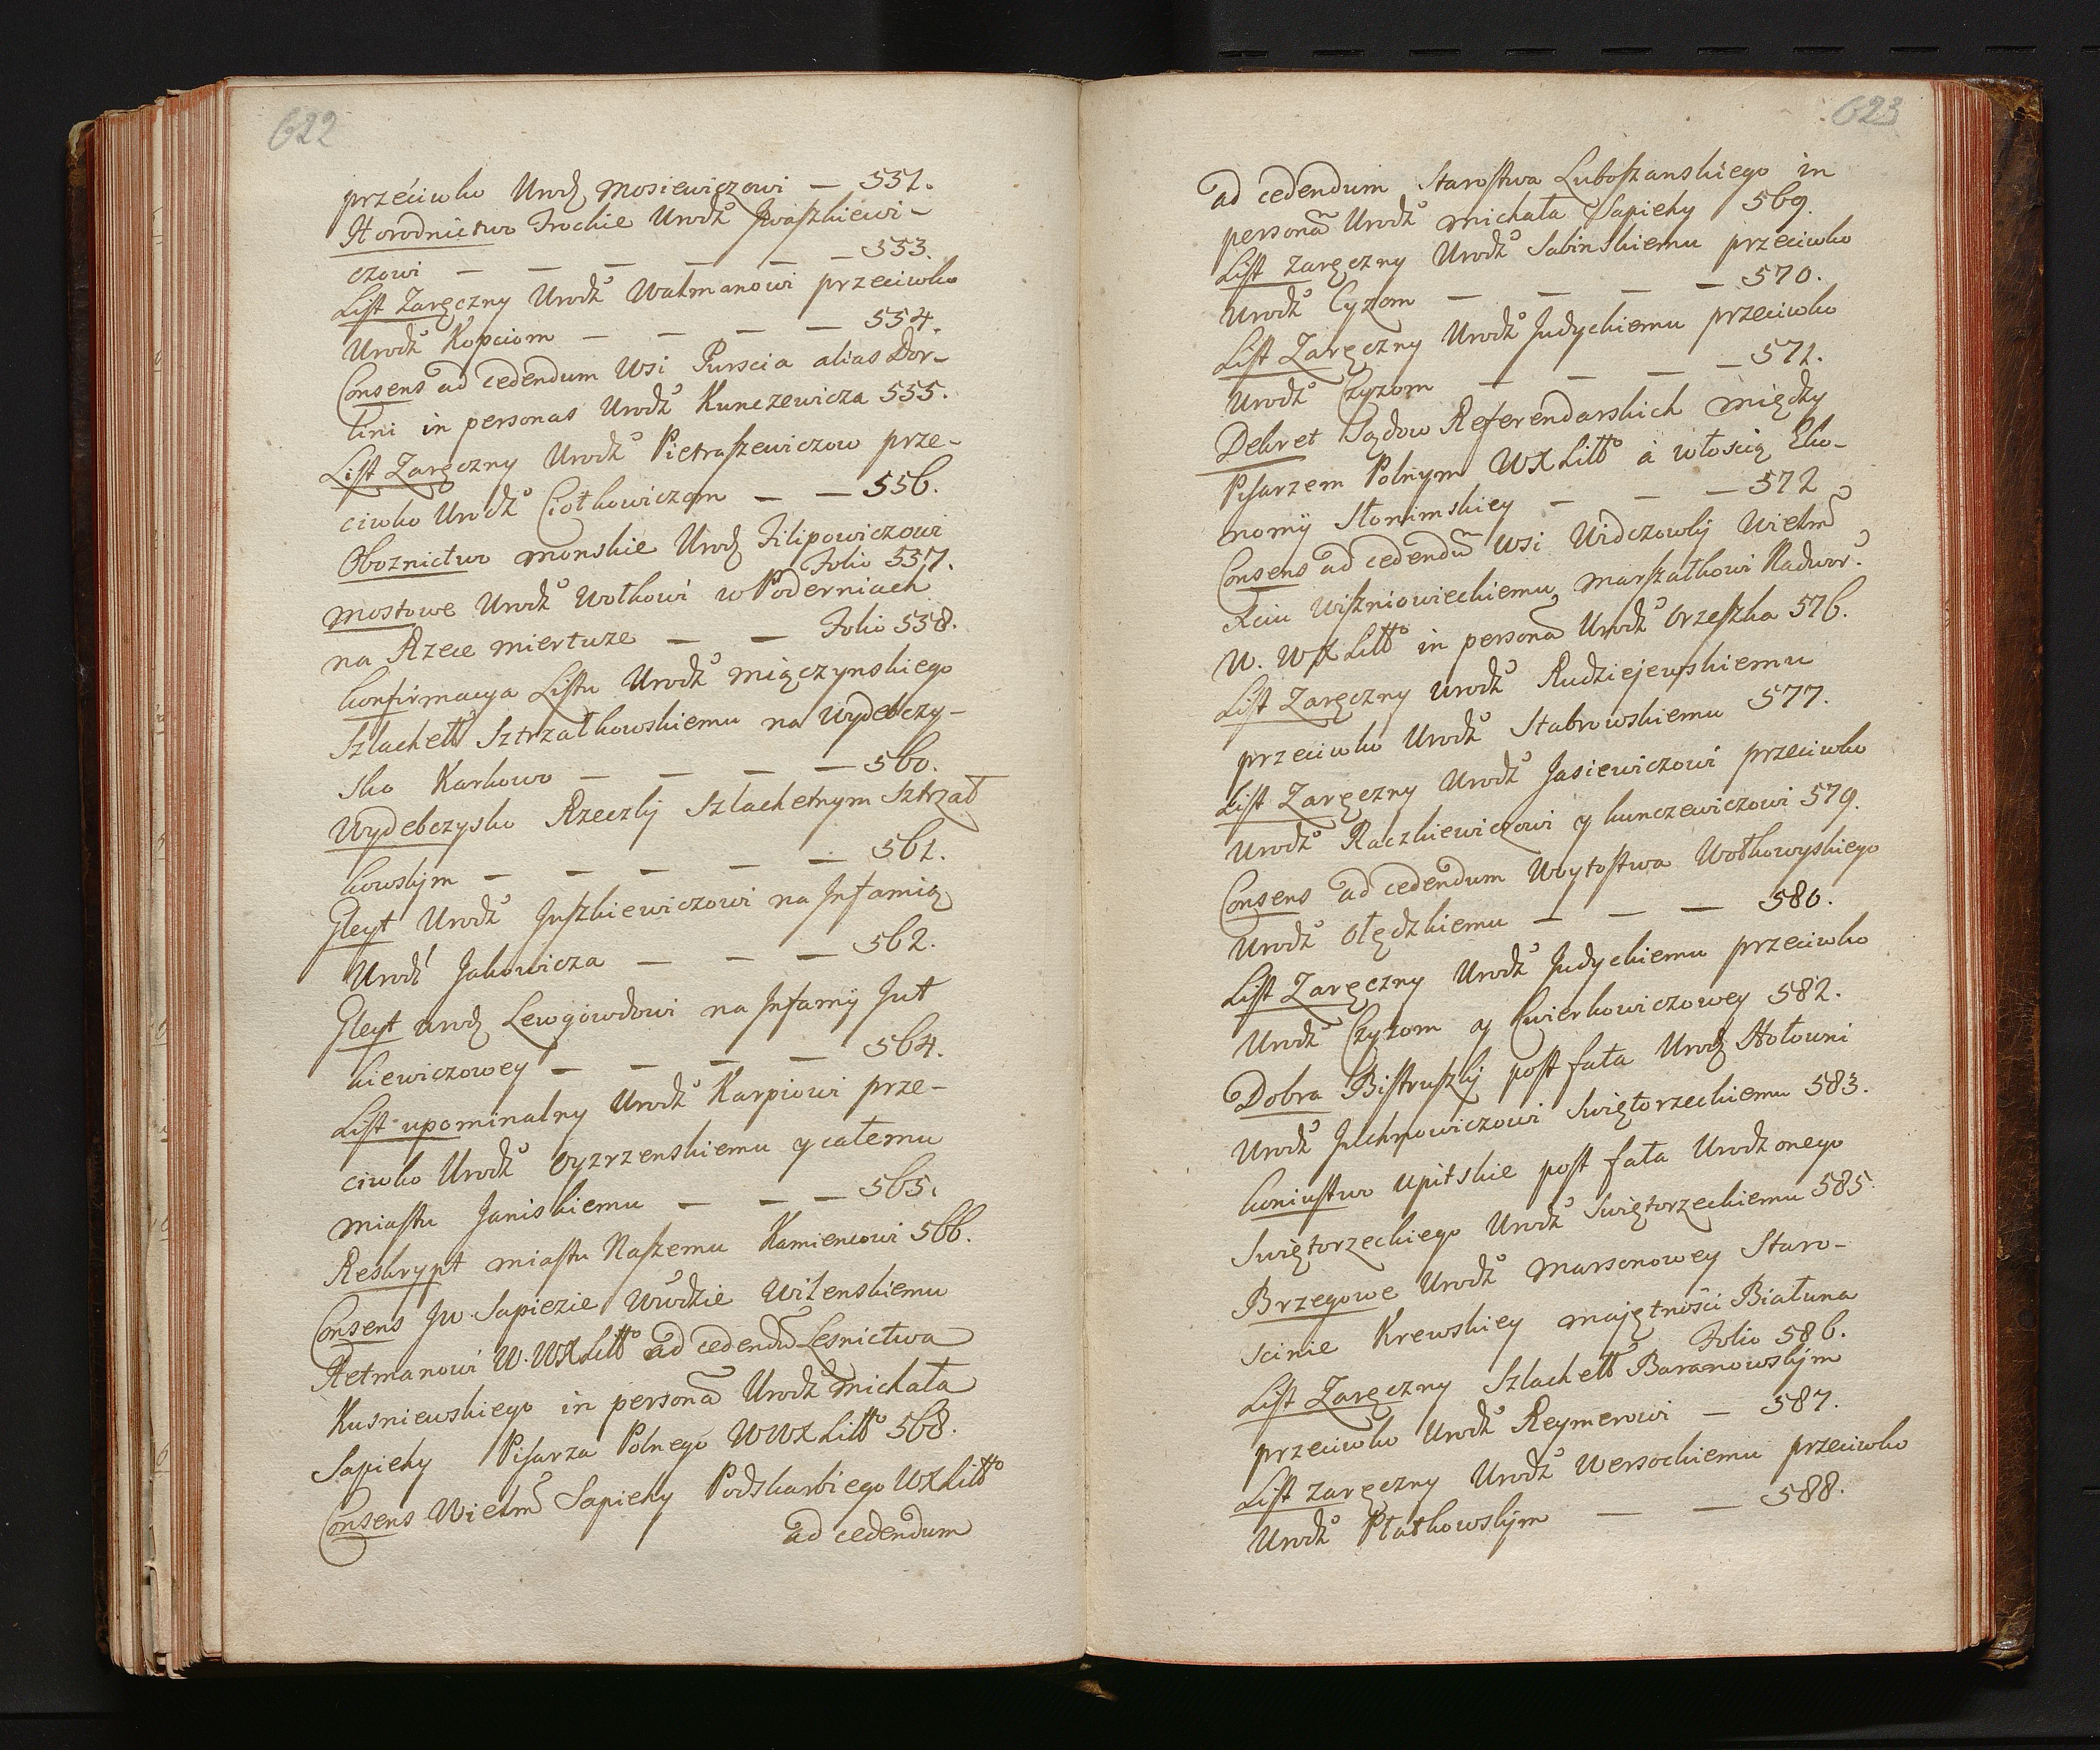 622
przéciwko Urodz Mosiewiczowi — 551.
Horodnictwo Trockie Urodz Iwaszkiewi-
czowi — — — — — — 553.
List Zaręczny Urodz Watmanowi przeciwko
Urodz Kopciom — — — — 554.
Consens ad cedendum Wsi Purscia alias Dor-
lini in personas Urodz Kunczewicza 555.
List Zaręczny Urodz Pietraszewiczow prze-
ciwko Urodz Ciotkowiczom — — 556.
Oboznictwo Monskie Urodz Filipowiczowi
Folio 557.
Mostowe Urodz Wołkowi w Poderniach
na Rzece Miertuze — — Folio 558.
Konfirmacya Listu Urodz Miączynskiego
Szlachett Sztrzałkowskiemu na Wydebczy-
sko Karkowo — — — — 560.
Wydebczysko Rzeczky Szlachetnym Sztrzał
kowskim — — — — — 561.
Gleyt Urodz Juszkiewiczowi na Infamią
Urodz Jakowicza — — — 562.
Gleyt Urodz Lewgowdowi na Infamij Jut
kiewiczowey — — — — 564.
List upominalny Urodz Karpiowi prze-
ciwko Urodz Oyrzrzenskiemu y całemu
Miastu Janiskiemu — — — 565.
Reskrypt Miastu Naszemu Kamiencowi 566.
Consens Jw Sapiezie Wwodzie Wilenskiemu
Hetmanowi W. WXLitto ad cedendu Lesnictwa
Kusniewskiego in persona Urodz Michała
Sapiehy Pisarza Polnego WWXLitto 568.
Consens Wielm Sapiehy Podskarbiego WXLitto
ad cedendum
623
ad cedendum Starostwa Luboszanskiego in
persona Urodz Michała Sapiehy 569.
List Zaręczny Urodz Sabinskiemu przeciwko
Urodz Cyzom — — — — 570.
List Zaręczny Urodz Judyckiemu przeciwko
Urodz Czyzom — — — — 571.
Dekret Sądow Referendarskich między
Pisarzem Polnym WXLitto a włoscią Eko-
nomij Słonimskiey — — — 572
Consens ad cedendu Wsi Widczowky Wielm
Xciu Wiszniowieckiemu Marszałkowi Nadwor.
W. WXLitto in persona Urodz Orzeszka 576.
List Zaręczny Urodz Rudziejewskiemu
przeciwko Urodz Stabrowskiemu 577.
List Zaręczny Urodz Jasiewiczowi przeciwko
Urodz Raczkiewiczowi y Kunczewiczowi 579.
Consens ad cedendum Woytostwa Wołkowyskiego
Urodz Olędzkiemu — — — 580.
List Zaręczny Urodz Judyckiemu przeciwko
Urodz Czyzom y Cwierkowiczowey 582.
Dobra Bistruszky post fata Urodz Hołowni
Urodz Juchnowiczowi Swiętorzeckiemu 583.
Koniustwo Upitskie post fata Urodzonego
Swiętorzeckiego Urodz Swiętorzeckiemu 585.
Brzegowe Urodz Marsonowey Staro-
scinie Krewskiey majętności Białuna
Folio 586.
List Zaręczny Szlachett Baranowskim
przeciwko Urodz Reymerowi — 587.
List Zaręczny Urodz Wersockiemu przeciwko
Urodz Płatkowskim — — 588.